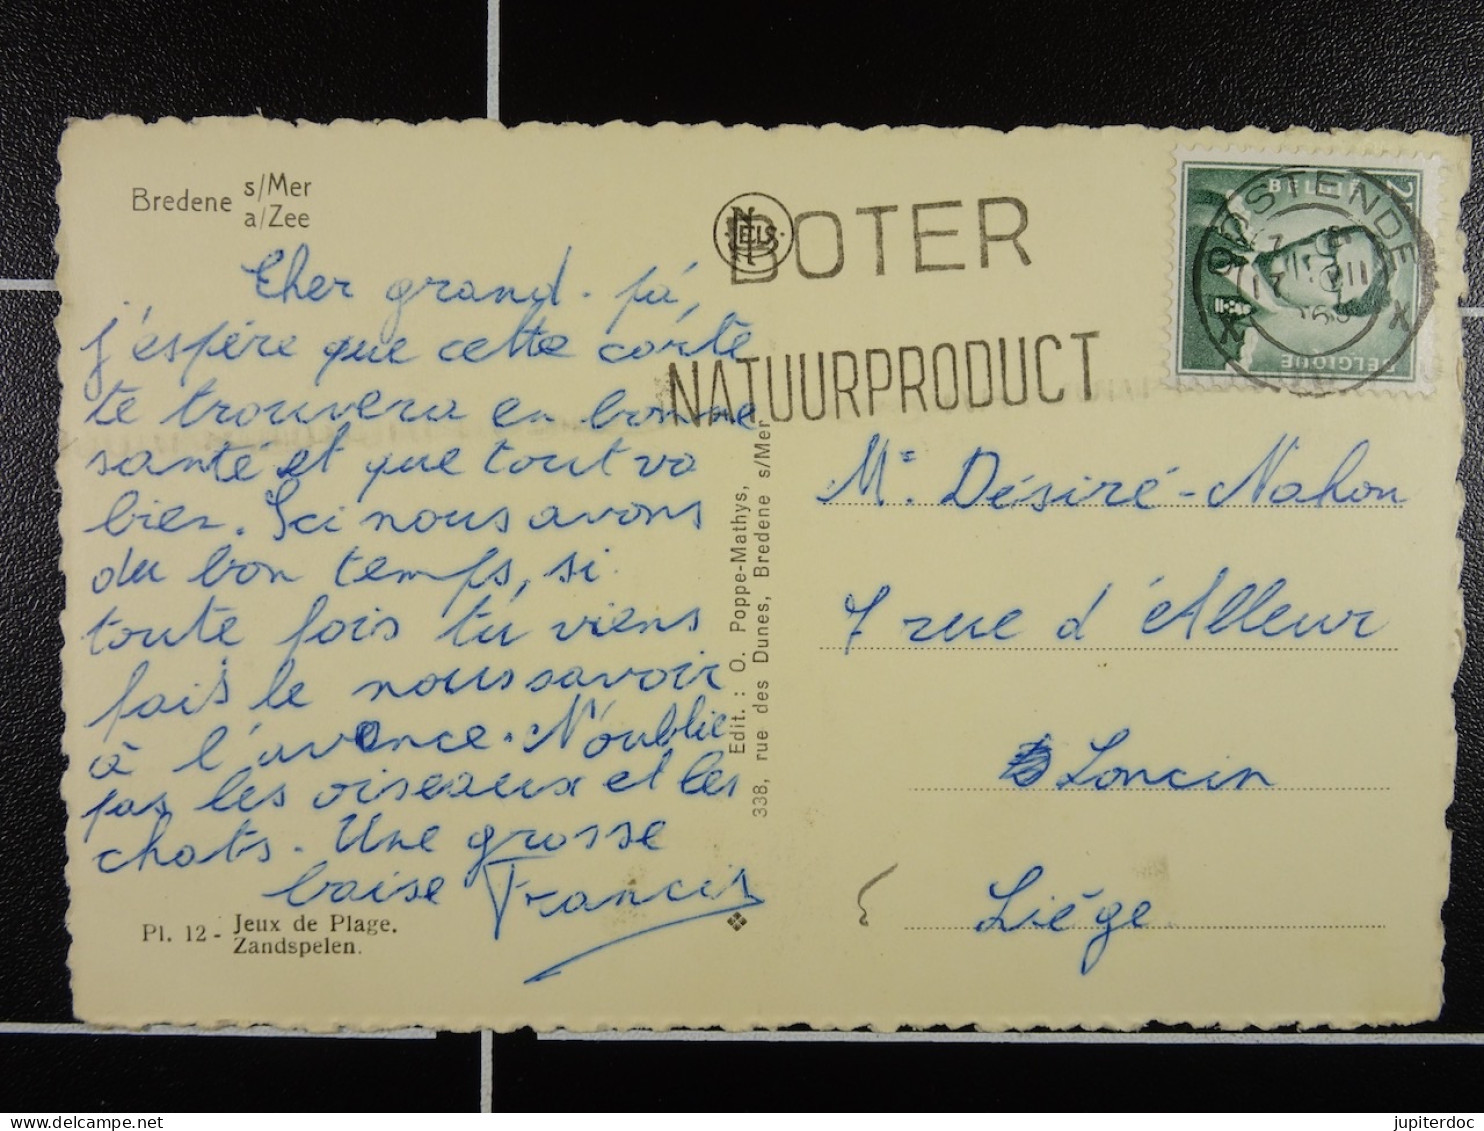 Bredene s/Mer
a/Zee
NELS
BOTER
NATUURPRODUCT
BELGIE
OOSTENDE
BELGIQUE
Cher grand-pá,
j'espére que cette carte
te trouvera en bonne
santé et que tout va
bien. Ici nous avons
du bon temps, si
toute fois tu viens
fais le nous savoir
à l'avance. N'oublie
pas les oiseaux et les
chats. Une grosse
baise Francis
Pl. 12 - Jeux de Plage.
Zandspelen.
Edit. : O. Poppe-Mathys,
338, rue des Dunes, Bredene s/Mer
Mr Désiré-Nahon
7 rue d'Alleur
Loncin
Liége
jupiterdoc